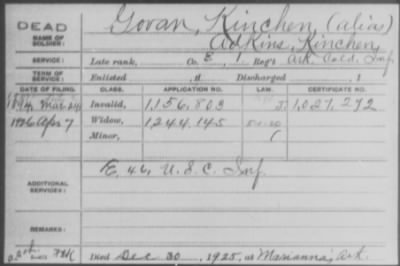 DEAD
NAME OF SOLDIER: Govan, Kinchen (alias)
Adkins, Kinchen
SERVICE: Late rank, Co. E, 1 Reg't Ark. Cold. Inf.
TERM OF SERVICE: Enlisted , 1 Discharged , 1
DATE OF FILING. CLASS. APPLICATION NO. LAW. CERTIFICATE NO.
Mar. Invalid, 1,156,803 1,027,272
1926 Apr 7 Widow, 1244145
Minor,
ADDITIONAL SERVICES: E. 46, U.S.C. Inf.
REMARKS:
Died Dec 30, 1925, at Marianna, Ark.